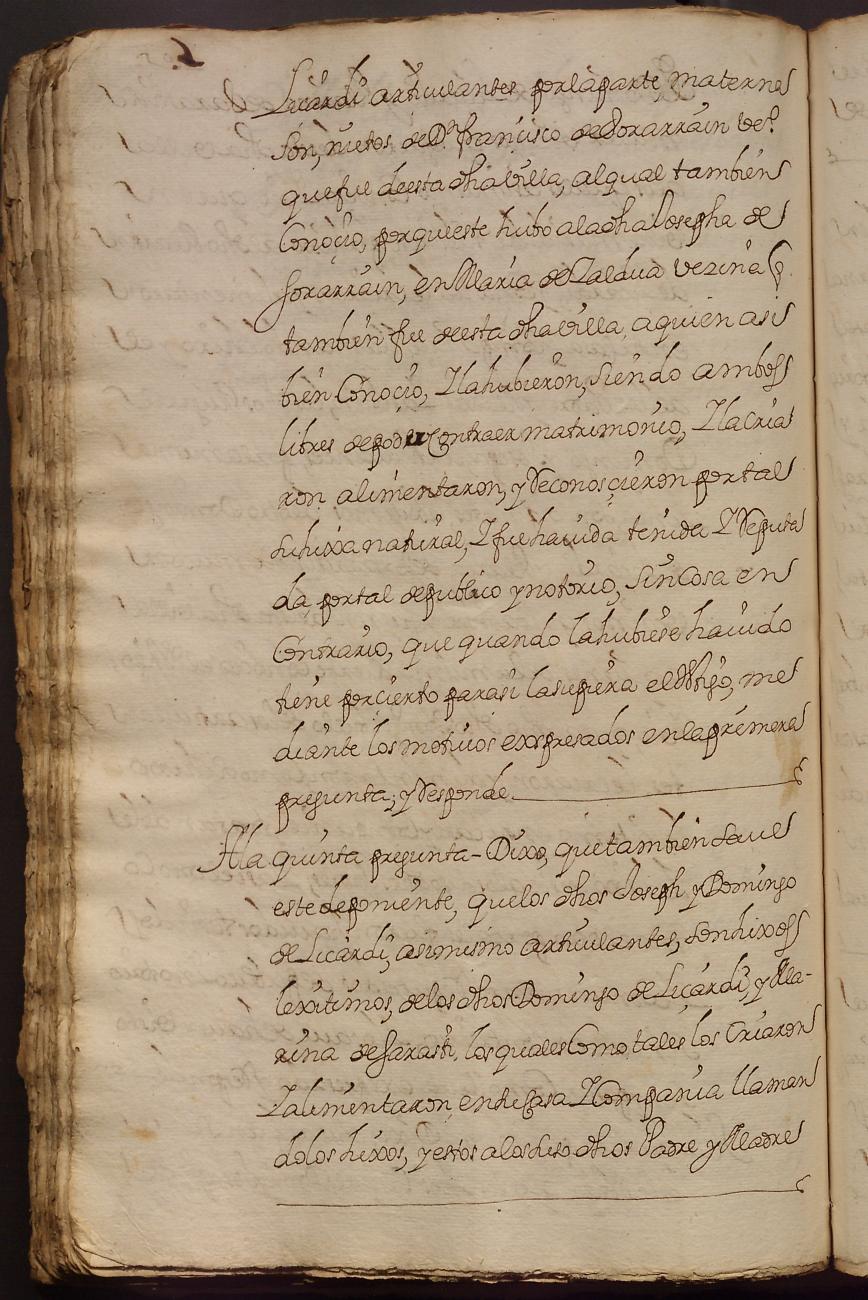 Licardi articulantes por la parte materna
son, nietos de Dn. francisco de Sorarrain veº.
que fue de esta dha villa, al qual tambien
Conoçio, porque este hubo a la dha Josepha de
Sorarrain, en Maria de Zaldua vezina q.
tambien fue de esta dha villa, a quien asi
bien Conoçio, Y la hubieron, siendo ambos
libres de poder Contraer matrimonio, Y la cria
ron alimentaron, y Reconosçieron por tal
su hixa natural, Y fue hauida tenida Y Reputa
da, por tal de publico y notorio, sin Cosa en
Contrario, que quando la hubiese hauido
tiene por cierto para si la supiera el tstigo, me
diante los motiuos expresados en la primera
pregunta, y Responde
A la quinta pregunta - Dixo, que tambien saue
este deponiente, que los dhos Joseph y Domingo
de Licardi, asimismo articulantes, son hixos
lexitimos, de los dhos Domingo de Licardi, y Ma-
rina de Sarasti, los quales Como tales los Criaron
Y alimentaron, en su Casa Y Compania llaman
dolos hixos, y estos a los suso dhos Padre y Madre